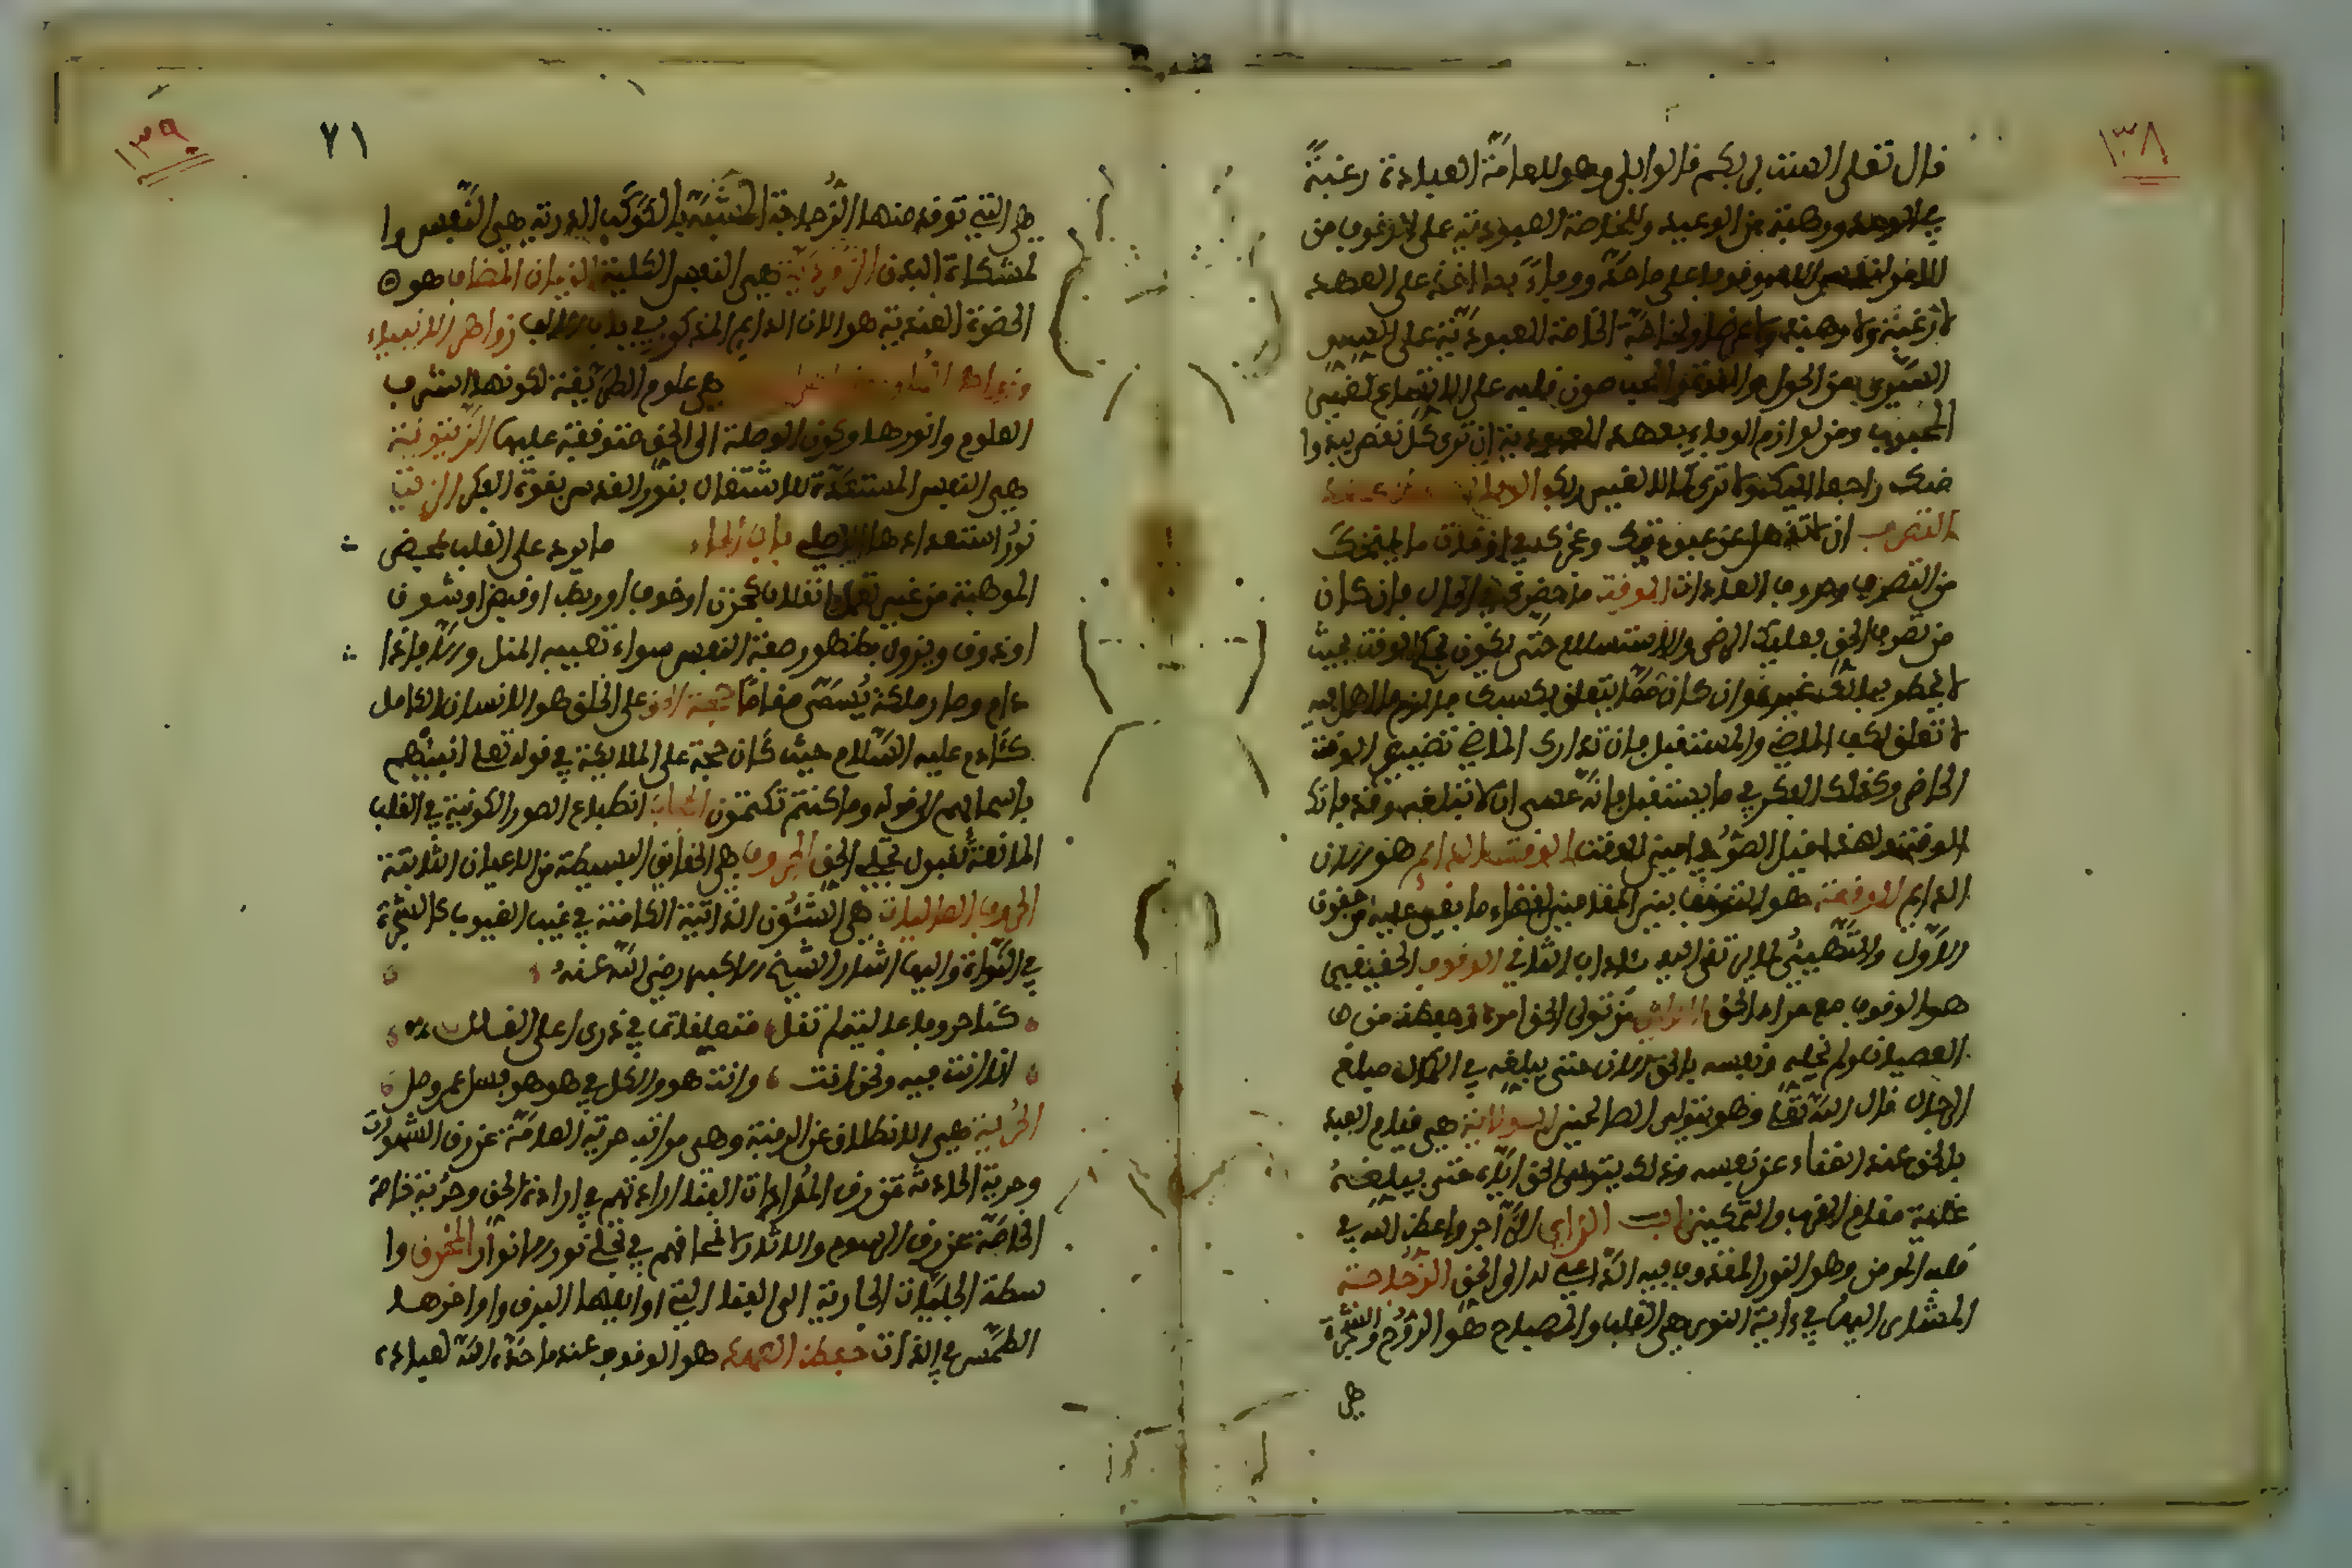 ١٣٨
قال تعلى الست بربكم قالوا بلى وهو للعامة العبادة رغبة
في الوعد ورهبة من الوعيد وللخاصة العبودية على الوقوف مع
الامر لنفس الامر وقوفا على ما حده ووفاء بما اخذه على العهد
لا رغبة ولا رهبة ولا غرضا ولخاصة الخاصة العبودية على
التبري من الحول والقوة للمحب صون قلبه على الاتساع لغير
المحبوب ومن لوازم الوفاء بعهد العبودية ان ترى كل نقص يبدوا
منك راجعا اليك ولا ترى كمالا لغير ربك
التصرف ان لا تذهل عن عبوديتك وعجزك في اوقات ما يمنحك
من التصرف وخرق العادات الوقت ما حضرك في الحال فان كان
من تصرف الحق فعليك الرضى والاستسلام حتى تكون بحكم الوقت بحيث
لا يخطر ببالك غيره وان كان مما يتعلق بكسبك فالزم ما اهمك فيه
لا تعلق لك بالماضي والمستقبل فان تدارك الماضي تضييع الوقت
الحاضر وكذلك الفكر في ما يستقبل فانه عسى ان لا تبلغه وقد فاتك
الوقت ولهذا قيل الصوفي ابن الوقت الوقت الدائم هو الان
الدائم الوقفة هو التوقف بين المقامين لقضاء ما بقي عليه من حقوق
الاول والتهيئ لما يرتقى اليه بآداب الثاني الوقوف الحقيقي
هو الوقوف مع مراد الحق الولي من تولى الحق امره وحفظه من
العصيان ولم يخله ونفسه بالخذلان حتى يبلغه في الكمال مبلغ
الرجال قال الله تعالى وهو يتولى الصالحين الولاية هي قيام العبد
بالحق عند الفناء عن نفسه وذلك بتولى الحق اياه حتى يبلغه
غاية مقام القرب والتمكين باب الزاي الزاجر واعظ الله في
قلب المومن وهو النور المقذوف فيه الداعي له الى الحق الزجاجة
المشار اليها في اية النور هي القلب والمصباح هو الروح والشجرة
هي
١٣٩
٧١
هي التي توقد منها الزجاجة المشبهة بالكوكب الدري هي النفس وا
لمشكاة البدن الزمردة هي النفس الكلية الزمان المضاف هو
الحضرة العندية هو الان الدايم المذكور في باب الالف زواهر الانباء
وزواهر العلوم هي علوم الطريقة لكونها اشرف
العلوم وانورها وكون الوصلة الى الحق متوقفة عليها الزيتونة
هي النفس المستعدة للاشتغال بنور القدس بقوة الفكر الزيت
نور استعدادها الاصلي باب الحاء ما يرد على القلب بمحض
الموهبة من غير تعمل كحزن او خوف او بسط او قبض او شوق
او ذوق ويزول بظهور صفة النفس سواء تعقبه المثل ام لا فاذا
دام وصار ملكة يسمى مقاما حجة الحق على الخلق هو الانسان الكامل
كئادم عليه السلام حيث كان حجة على الملائكة في قوله تعلى انبئهم
باسمائهم الى قوله وما كنتم تكتمون الحجاب انطباع الصور الكونية في القلب
المانعة لقبول تجلي الحق الحروف هي الحقايق البسيطة من الاعيان الثابتة
الحروف العاليات هي الشؤن الذاتية الكامنة في غيب الغيوب كالشجرة
في النواة واليها اشار الشيخ الاكبر رضي الله عنه
كنا حروفا عاليات لم نقل متعلقات في ذرى اعلى القلل
انا انت فيه ونحن انت وانت هو والكل في هو هو فسل عمن وصل
الحرية هي الانطلاق عن الرقية وهي مراتب حرية العامة عن رق الشهوات
وحرية الخاصة عن رق المرادات لفناء ارادتهم في ارادة الحق وحرية خاصة
الخاصة عن رق الرسوم والاثار لانمحاقهم في تجلي نور الانوار الحرق وا
سطة التجليات الجارية الى الفناء التي اوايلها البرق واواخرها
الطمس في الذات حفظ العهد هو الوقوف عند ما حده الله لعباده